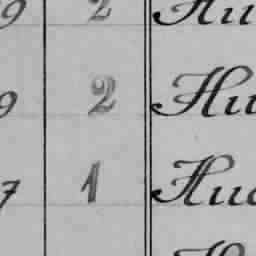 9 2 Hu
9 2 Hu
7 1 Hud